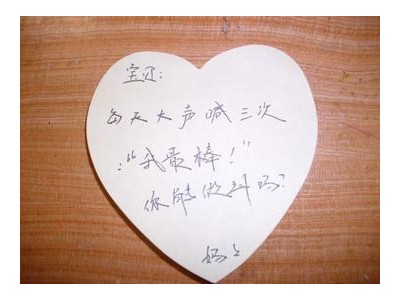 宝还:
每天大声喊三次
:"我最棒!"
你能做到吗?
妈ミ